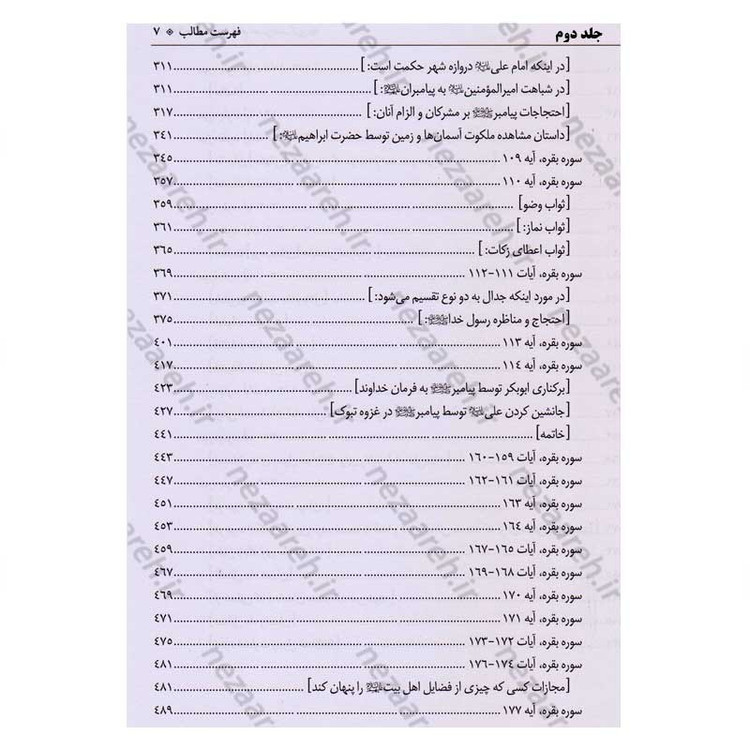 جلد دوم
فهرست مطالب ※ ۷
[در اینکه امام علی علیه‌السلام دروازه شهر حکمت است:] ۳۱۱
[در شباهت امیرالمؤمنین علیه‌السلام به پیامبران علیهم‌السلام:] ۳۱۱
[احتجاجات پیامبر ﷺ بر مشرکان و الزام آنان:] ۳۱۷
[داستان مشاهده ملکوت آسمان‌ها و زمین توسط حضرت ابراهیم علیه‌السلام:] ۳۴۱
سوره بقره، آیه ۱۰۹ ۳۴۵
سوره بقره، آیه ۱۱۰ ۳۵۷
[ثواب وضو] ۳۵۹
[ثواب نماز:] ۳۶۱
[ثواب اعطای زکات:] ۳۶۵
سوره بقره، آیات ۱۱۱-۱۱۲ ۳۶۹
[در مورد اینکه جدال به دو نوع تقسیم می‌شود:] ۳۷۱
[احتجاج و مناظره رسول خدا ﷺ:] ۳۷۵
سوره بقره، آیه ۱۱۳ ۴۰۱
سوره بقره، آیه ۱۱۴ ۴۱۷
[برکناری ابوبکر توسط پیامبر ﷺ به فرمان خداوند] ۴۲۳
[جانشین کردن علی علیه‌السلام توسط پیامبر ﷺ در غزوه تبوک] ۴۲۷
[خاتمه] ۴۴۱
سوره بقره، آیات ۱۵۹-۱۶۰ ۴۴۳
سوره بقره، آیات ۱۶۱-۱۶۲ ۴۴۷
سوره بقره، آیه ۱۶۳ ۴۵۱
سوره بقره، آیه ۱۶۴ ۴۵۳
سوره بقره، آیات ۱۶۵-۱۶۷ ۴۵۹
سوره بقره، آیات ۱۶۸-۱۶۹ ۴۶۷
سوره بقره، آیه ۱۷۰ ۴۶۹
سوره بقره، آیه ۱۷۱ ۴۷۱
سوره بقره، آیات ۱۷۲-۱۷۳ ۴۷۵
سوره بقره، آیات ۱۷۴-۱۷۶ ۴۸۱
[مجازات کسی که چیزی از فضایل اهل بیت علیهم‌السلام را پنهان کند] ۴۸۱
سوره بقره، آیه ۱۷۷ ۴۸۹
nezaareh.ir